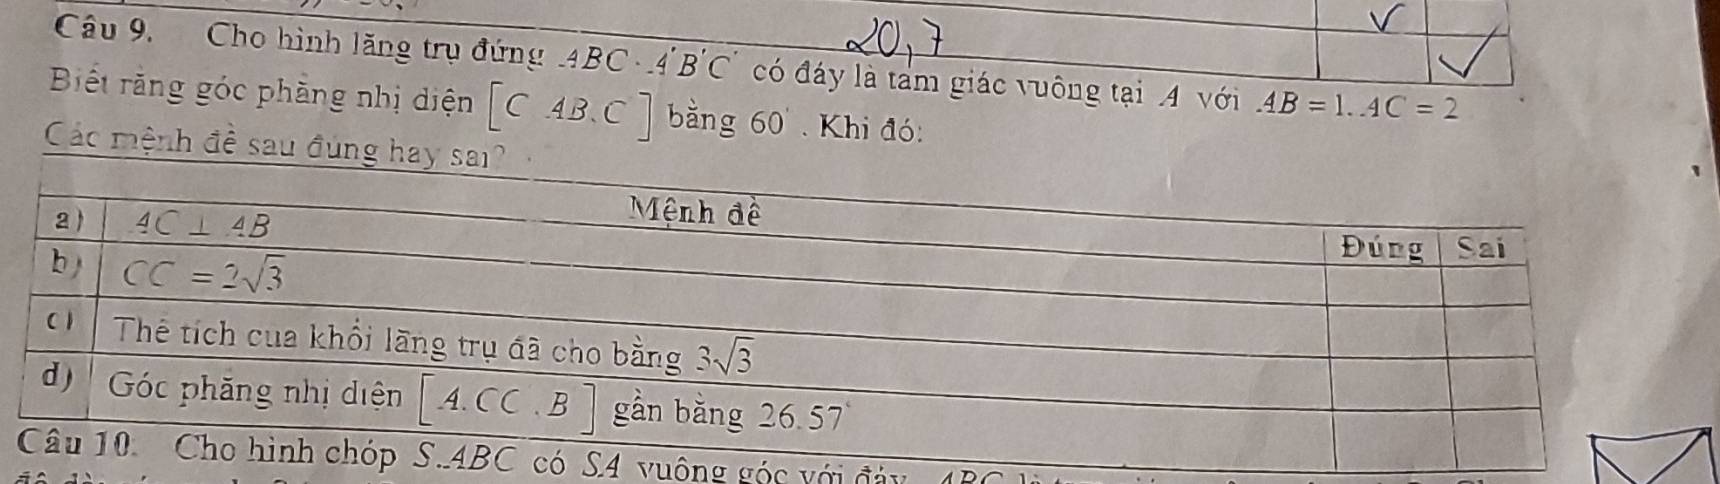 20,7
Câu 9. Cho hình lăng trụ đứng ABC.A'B'C' có đáy là tam giác vuông tại A với AB = 1. AC = 2
Biết rằng góc phẳng nhị diện [C AB, C'] bằng 60°. Khi đó:
Các mệnh đề sau đúng hay sai?
Mệnh đề Đúng Sai
a) AC ⊥ AB
b) CC = 2√3
c) Thể tích của khối lăng trụ đã cho bằng 3√3
d) Góc phẳng nhị diện [A. CC. B] gần bằng 26.57°
Câu 10. Cho hình chóp S.ABC có SA vuông góc với đáy